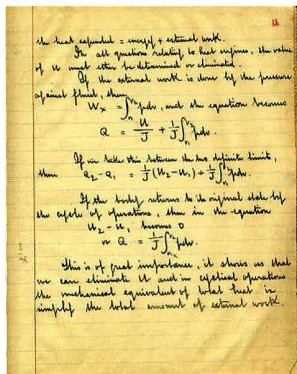 16
the heat expended = energy + external work.
In all questions relating to heat engines, the value
of U must either be determined or eliminated.
If the external work is done by the pressure
against fluid, then
Wx = ∫pdv, and the equation becomes
Q = U/J + 1/J ∫pdv.
If we take this between the two definite limits,
then Q2 - Q1 = 1/J (U2 - U1) + 1/J ∫pdv.
If the body returns to its original state by
the cycle of operations, then in the equation
U2 - U1 becomes 0
or Q = 1/J ∫pdv.
This is of great importance, it shows us that
we can eliminate U and in cyclical operations
the mechanical equivalent of total heat is
simply the total amount of external work.